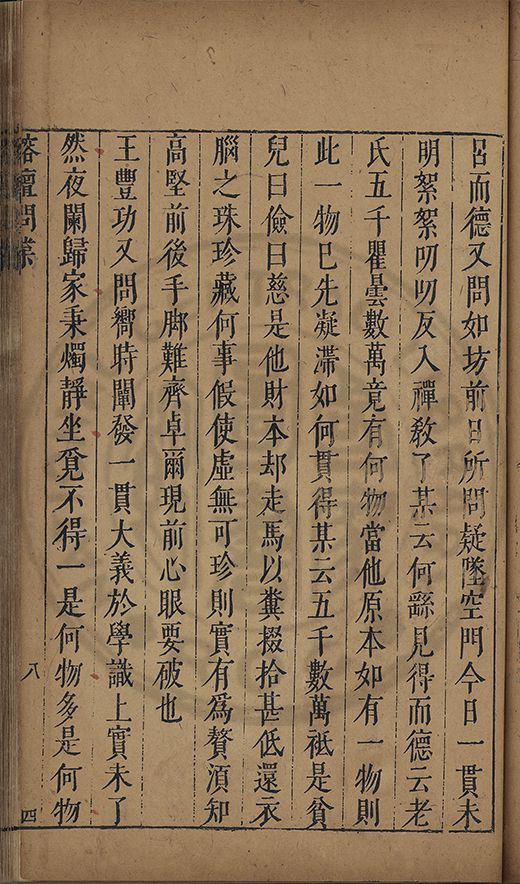 呂而德又問如坊前日所問疑墜空門今日一貫未
明絮絮叨叨反入禪教了某云何繇見得而德云老
氏五千瞿曇數萬竟有何物當他原本如有一物則
此一物已先凝滯如何貫得某云五千數萬祗是貧
兒曰儉曰慈是他財本却走馬以糞掇拾甚低還衣
腦之珠珍藏何事假使虛無可珍則實有爲贅須知
高堅前後手脚難齊卓爾現前心眼要破也
王豐功又問嚮時闡發一貫大義於學識上實未了
然夜闌歸家秉燭靜坐覓不得一是何物多是何物
榕壇問業
八
四